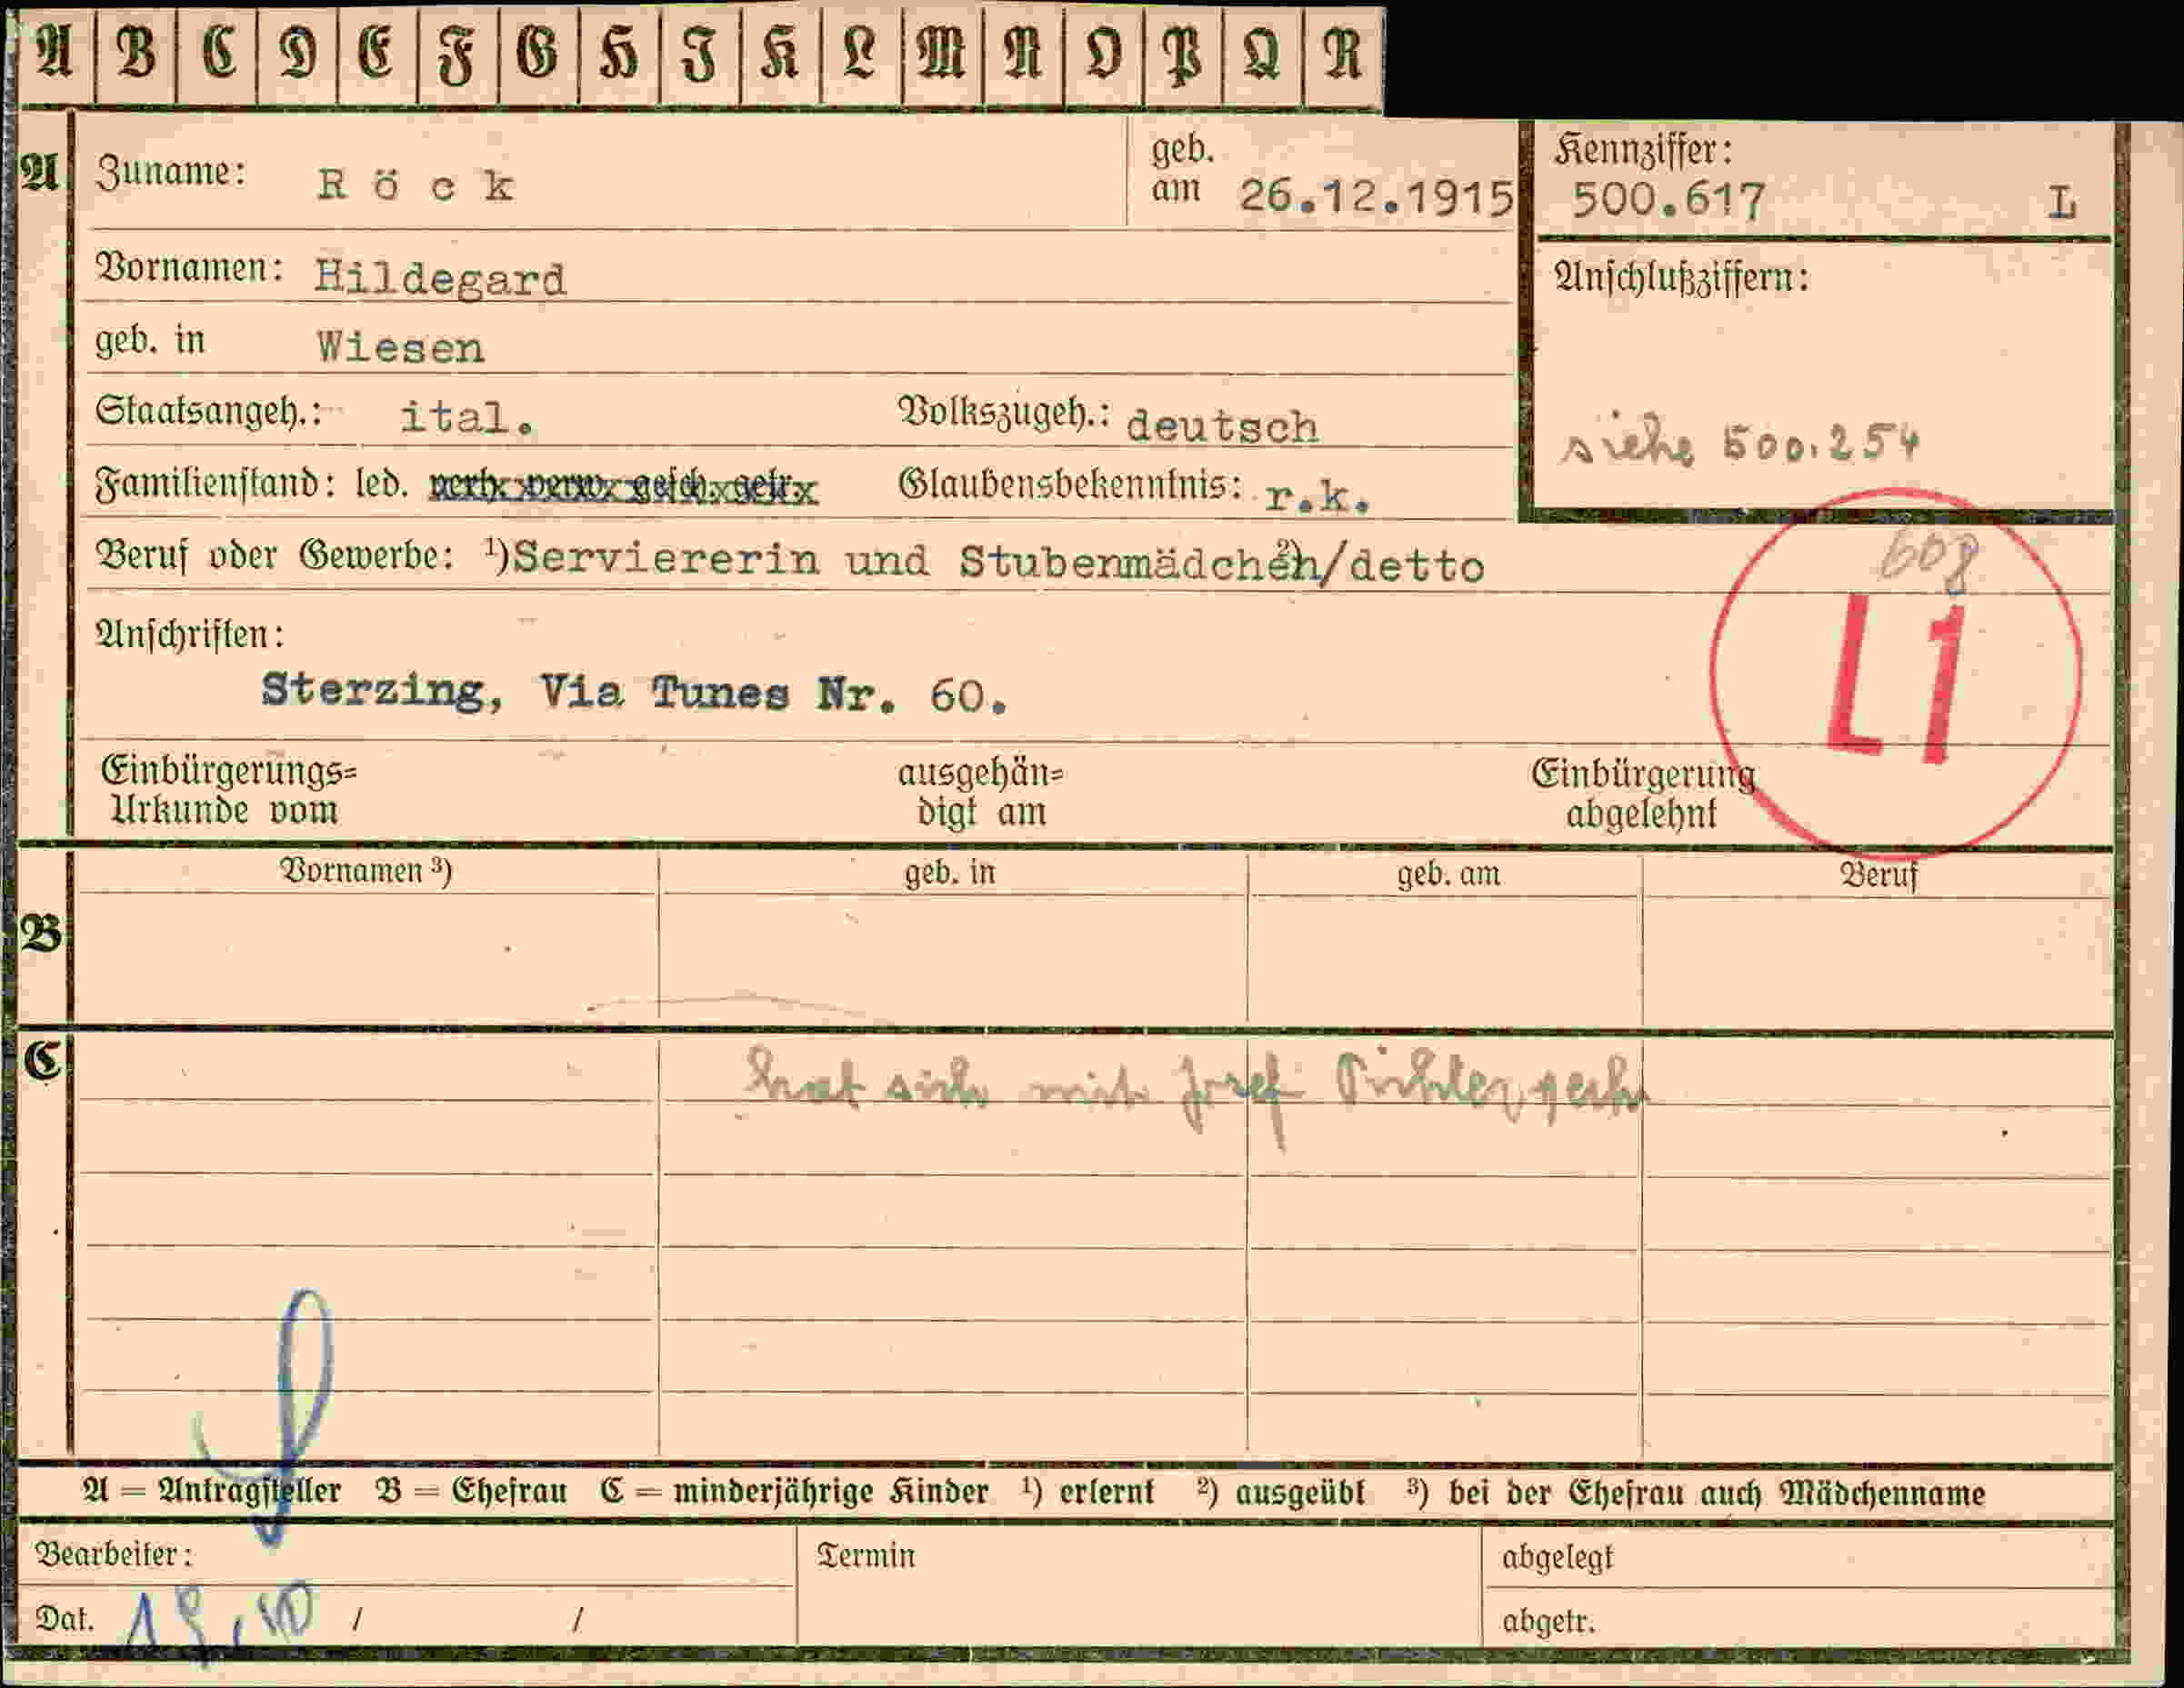 A B C D E F G H I K L M N O P Q R
A Zuname: Röck geb. am 26.12.1915 Kennziffer: 500.617 L
Vornamen: Hildegard Anschlußziffern:
geb. in Wiesen
Staatsangeh.: ital. Volkszugeh.: deutsch siehe 500.254
Familienstand: led. verh. verw. gesch. getr. Glaubensbekenntnis: r.k.
Beruf oder Gewerbe: ¹)Serviererin und Stubenmädchen/²)detto 608
Anschriften: L1
Sterzing, Via Tunes Nr. 60.
Einbürgerungs= ausgehän= Einbürgerung
Urkunde vom digt am abgelehnt
Vornamen ³) geb. in geb. am Beruf
B
C hat sich mit Josef Pichler
A = Antragsteller B = Ehefrau C = minderjährige Kinder ¹) erlernt ²) ausgeübt ³) bei der Ehefrau auch Mädchenname
Bearbeiter: Termin abgelegt
Dat. / / abgetr.